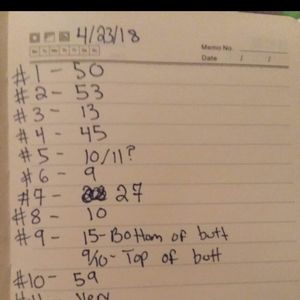 4/23/18
Memo No.
Date / /
#1 - 50
#2 - 53
#3 - 13
#4 - 45
#5 - 10/11?
#6 - 9
#7 - 27
#8 - 10
#9 - 15 - Bottom of butt
9/10 - Top of butt
#10 - 59
#11 - Very